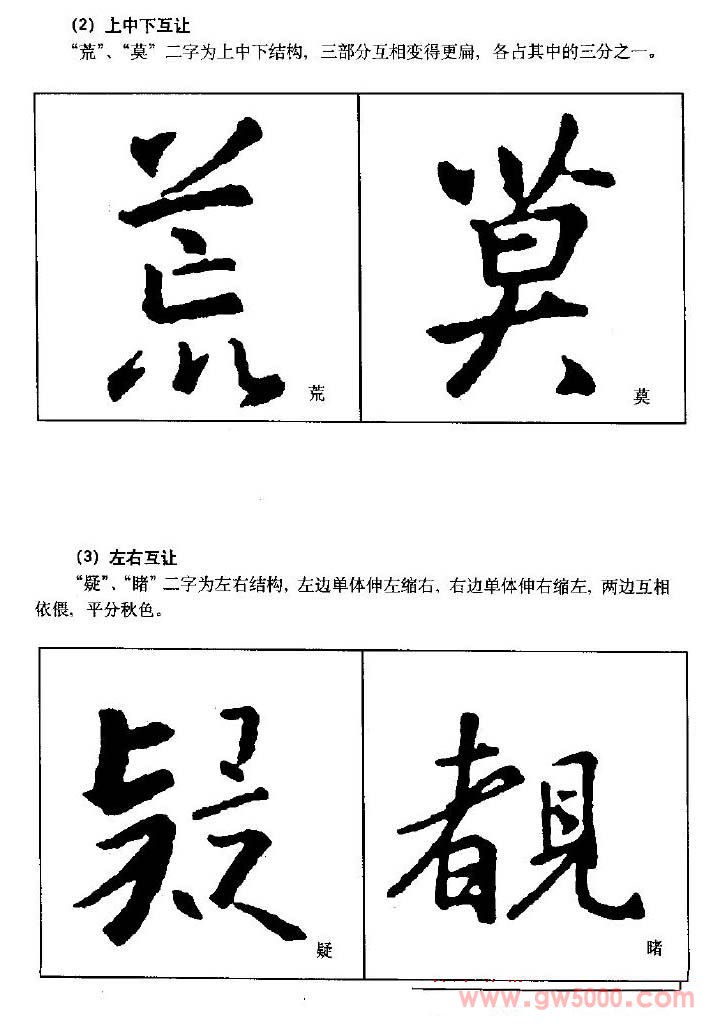 (2) 上中下互让
“荒”、“莫” 二字为上中下结构，三部分互相变得更扁，各占其中的三分之一。
荒 莫
荒 莫
(3) 左右互让
“疑”、“睹” 二字为左右结构，左边单体伸左缩右，右边单体伸右缩左，两边互相
依偎，平分秋色。
疑 覩
疑 睹
www.gw5000.com